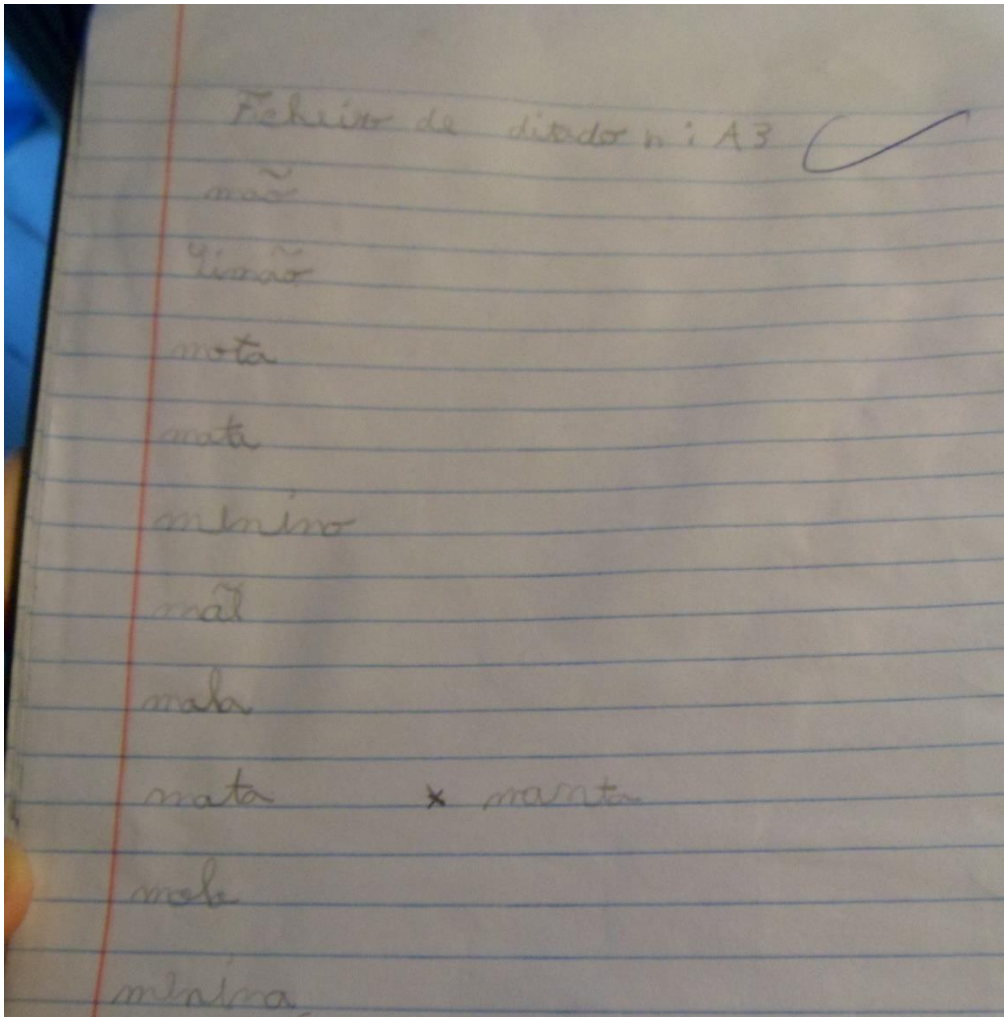 Ficheiro de ditado n: A3
mão
limão
mota
mata
menino
mãe
mala
mata x manta
mole
menina